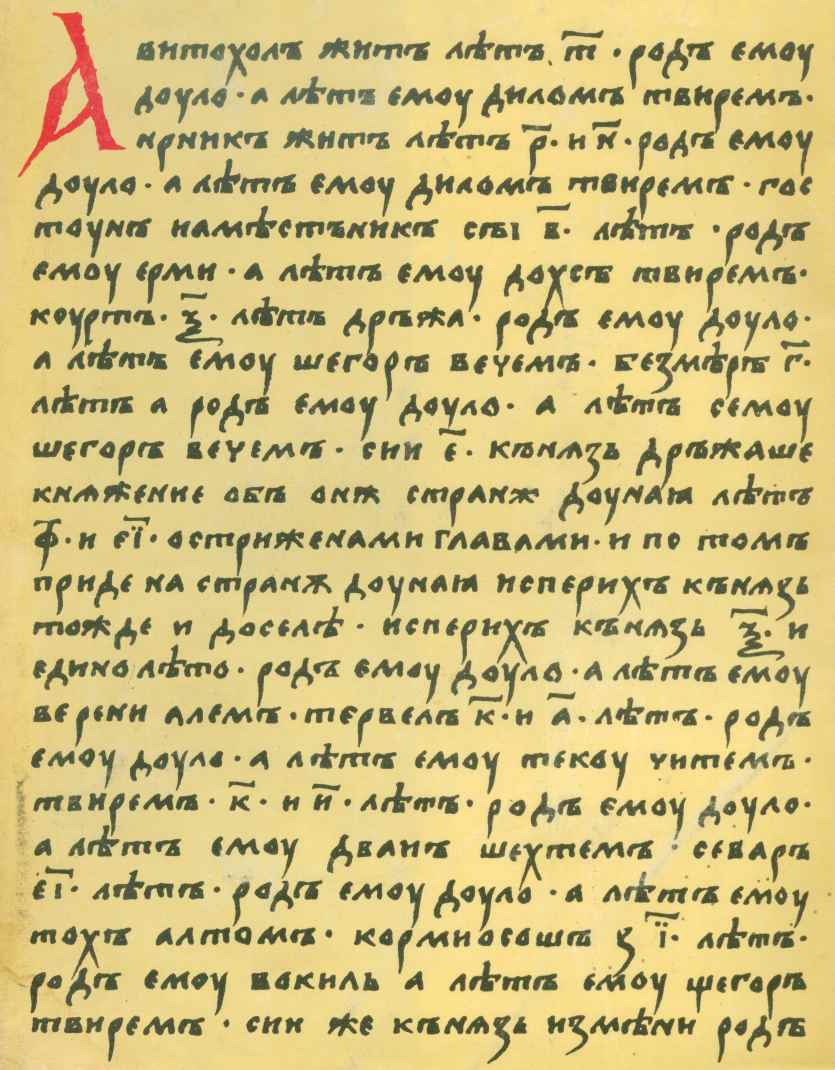 Авитохолъ житъ лѣтъ. т҃ · родъ емоу
доуло · а лѣтъ емоу диломъ твиремъ ·
ирникъ житъ лѣтъ р҃ · и н҃ · родъ емоу
доуло · а лѣтъ емоу диломъ твиремъ · гос
тоунъ намѣстъникъ сьі в҃ · лѣтъ · родъ
емоу ерми · а лѣтъ емоу дохсъ твиремъ ·
коуртъ · ѯ҃ · лѣтъ дръжа · родъ емоу доуло ·
а лѣтъ емоу шегоръ вечемъ · безмѣръ г҃ ·
лѣтъ а родъ емоу доуло · а лѣтъ семоу
шегоръ вечемъ · сии е҃ · кънѧзь дръжаше
кнѧжение обь онѫ странѫ доунаꙗ лѣтъ
ф҃ · и еі҃ · остриженами главами · и по томъ
приде на странѫ доунаꙗ исперихъ кънѧзь
тожде и доселѣ · исперихъ кънѧзь ѯ҃ · и
едино лѣто · родъ емоу доуло · а лѣтъ емоу
верени алемъ · тервель к҃ · и а҃ · лѣтъ · родъ
емоу доуло · а лѣтъ емоу текоу читемъ ·
твиремъ · к҃ · и и҃ · лѣтъ · родъ емоу доуло ·
а лѣтъ емоу дванъ шехтемъ · севаръ
еі҃ · лѣтъ · родъ емоу доуло · а лѣтъ емоу
тохъ алтомъ · кормиосошь з і҃ · лѣтъ ·
родъ емоу вокиль а лѣтъ емоу шегоръ
твиремъ · сии же кънѧзь измѣни родъ